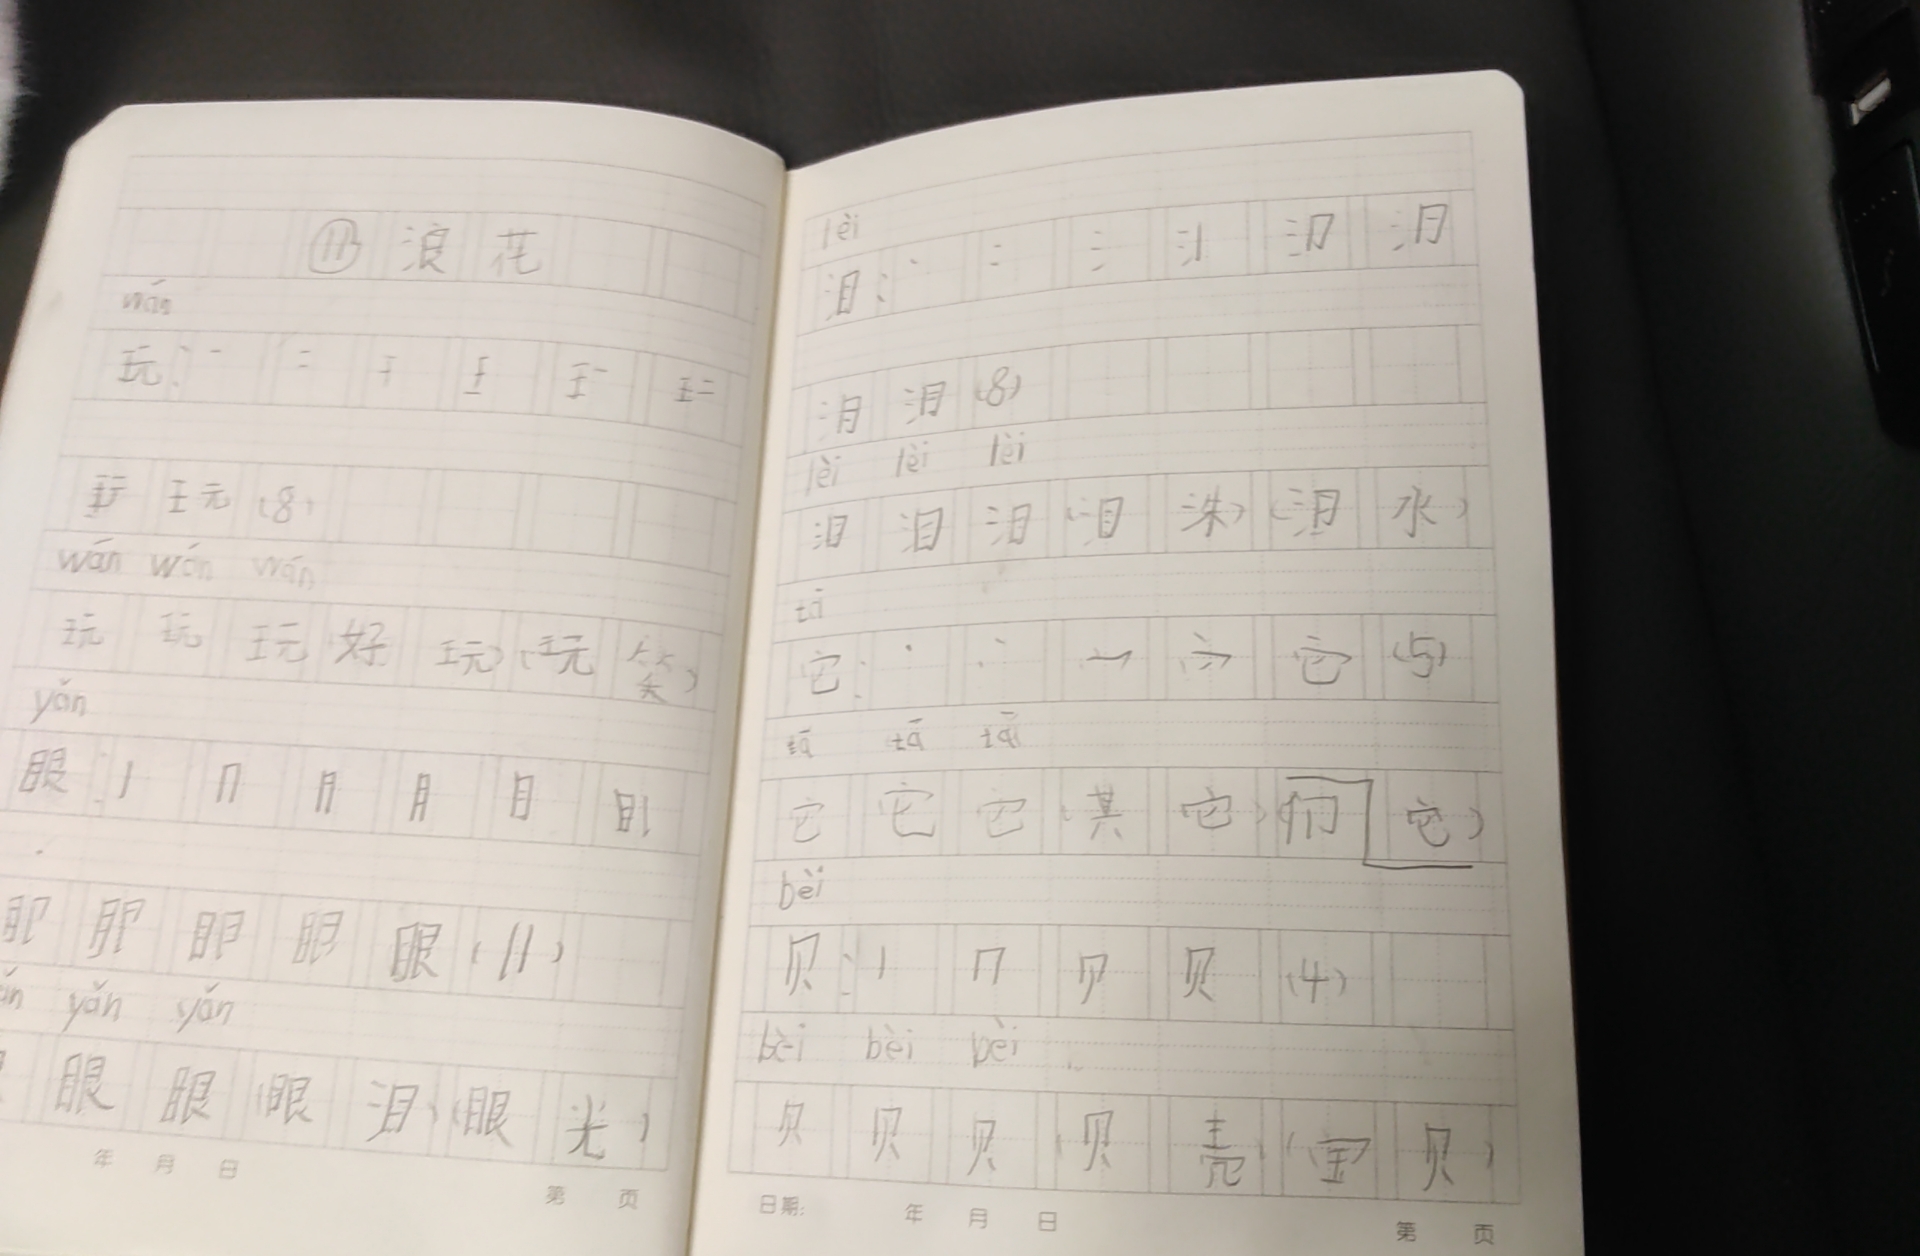 ⑪ 浪 花
wán
玩：一 二 干 王 王一 王二
玩 玩 (8)
wán wán wán
玩 玩 玩 (好 玩) (玩 笑)
yǎn
眼：丨 冂 月 月 目
眼 (11)
yǎn yǎn
眼 眼 (眼 泪) (眼 光)
年 月 日
第 页
lèi
泪：丶 冫 氵
泪 泪 (8)
lèi lèi lèi
泪 泪 泪 (泪 洙) (泪 水)
tā
它：丶 丷 宀 它 (5)
tā tā tā
它 它 它 (其 它) (们 它)
bèi
贝：丨 冂 贝 贝 (4)
bèi bèi bèi
贝 贝 贝 (贝 壳) (宝 贝)
日期: 年 月 日
第 页